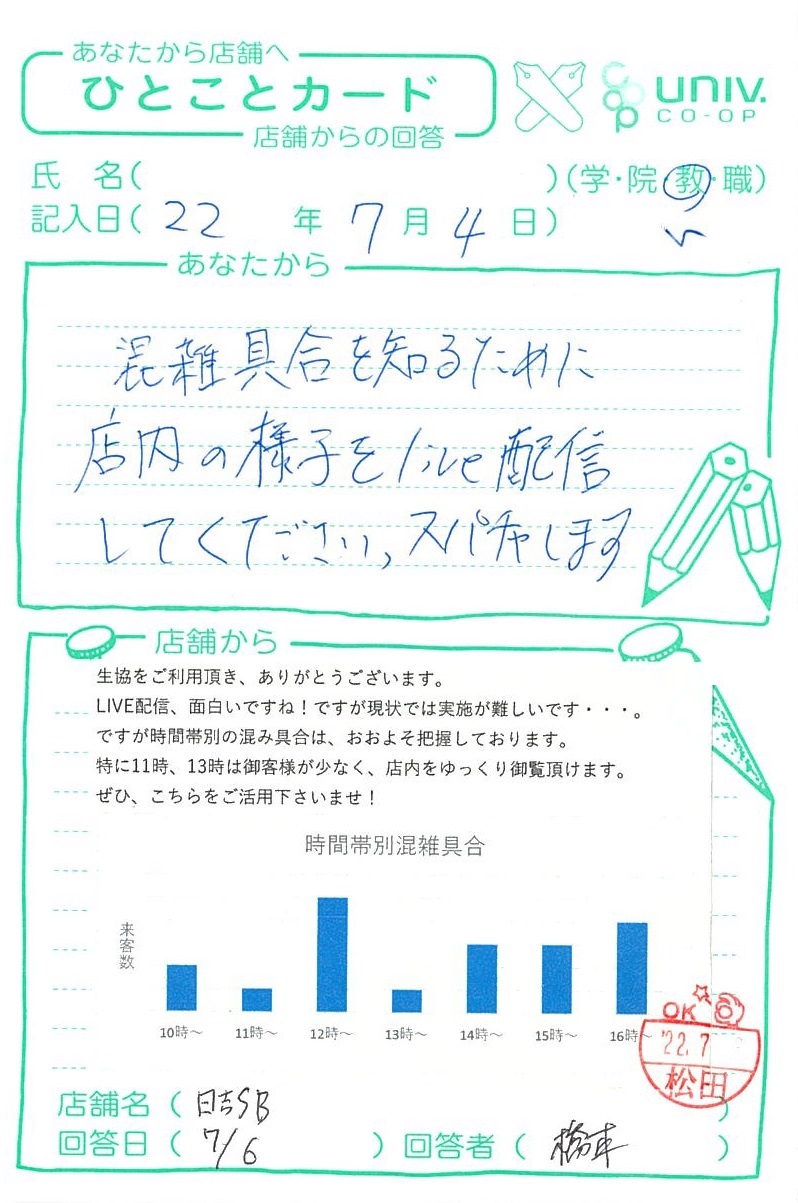 あなたから店舗へ
ひとことカード
店舗からの回答
univ.
CO-OP
氏 名( )(学・院・教・職)
い
記入日( 22 年 7 月 4 日)
あなたから
混雑具合を知るために
店内の様子をlive配信
してください。スパチャします
店舗から
生協をご利用頂き、ありがとうございます。
LIVE配信、面白いですね！ですが現状では実施が難しいです・・・。
ですが時間帯別の混み具合は、おおよそ把握しております。
特に11時、13時は御客様が少なく、店内をゆっくり御覧頂けます。
ぜひ、こちらをご活用下さいませ！
時間帯別混雑具合
来客数
10時～ 11時～ 12時～ 13時～ 14時～ 15時～ 16時～
OK
'22.7
松田
店舗名 ( 日吉SB )
回答日 ( 7/6 ) 回答者 ( )